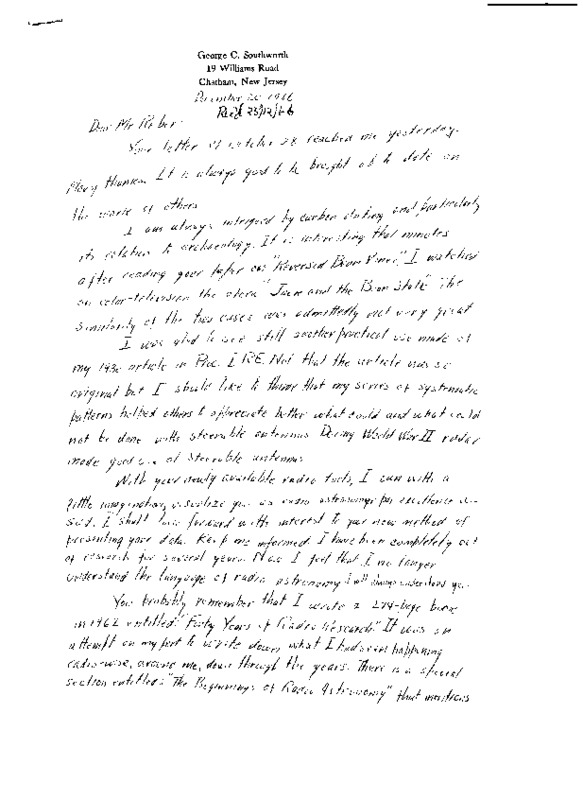 George C. Southworth
19 Williams Road
Chatham, New Jersey
December 20 1966
Rec'd 28/12/66
Dear Mr Reber:
Your letter of October 28 reached me yesterday.
Many thanks. It is always good to be brought up to date on
the work of others
I am always intrigued by carbon dating and particularly
its relation to archaeology. It is interesting that minutes
after reading your paper on "Reversed Bean Vines," I watched
on color-television the story "Jack and the Bean Stalk" The
similarity of the two cases was admittedly not very great
I was glad to see still another practical use made of
my 1930 article in Proc. IRE. Not that the article was so
original but I should like to think that my series of systematic
patterns helped others to appreciate better what could and what could
not be done with steerable antennas. During World War II radar
made good use of steerable antennas
With your newly available radio tools, I can with a
little imagination, visualize you as radio astronomy par excellence
said. I shall look forward with interest to your new method of
presenting your data. Keep me informed. I have been completely out
of research for several years. Now I feel that I no longer
understand the language of radio astronomy I will always understand you.
You probably remember that I wrote a 274-page book
in 1962 entitled: "Forty Years of Radio Research." It was an
attempt on my part to write down what I had seen happening
radio-wise, around me, down through the years. There is a special
section entitled: "The Beginnings of Radio Astronomy" that mentions